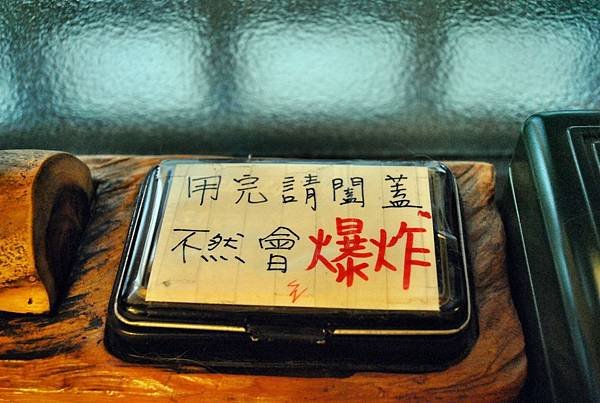 用完請闔蓋
不然會爆炸